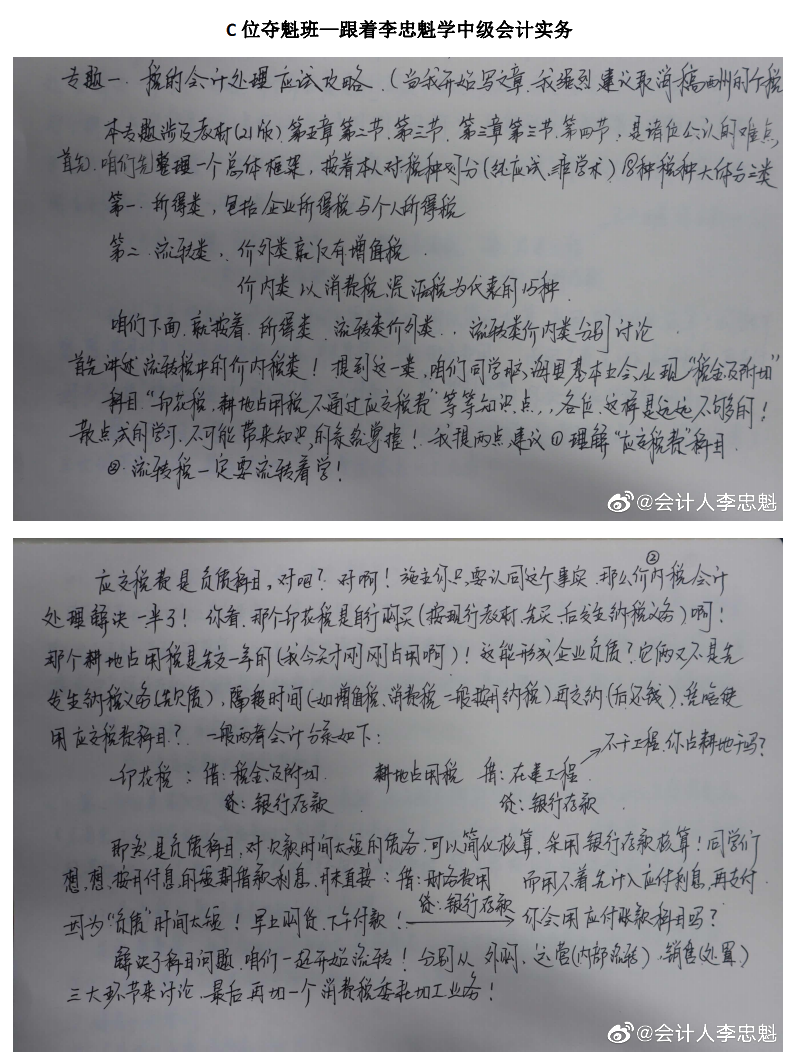 C 位夺魁班—跟着李忠魁学中级会计实务
专题一. 税的会计处理应试攻略.(当我开始写文章.我强烈建议取消稿酬的个税
本专题涉及教材(21版).第五章第二节.第三节.第三章第三节.第四节,是诸位公认的难点
首先.咱们先整理一个总体框架,按着本人对税种划分(纯应试.非学术)18种税种大体分三类
第一.所得类,包括企业所得税与个人所得税
第二.流转类,价外类就仅有增值税.
价内类以消费税、资源税为代表的15种.
咱们下面.就按着.所得类.流转类价外类..流转类价内类分别讨论
首先讲述流转税中的价内税类!提到这一类,咱们同学脑海里基本上会出现“税金及附加”
科目.“印花税,耕地占用税不通过应交税费”等等知识点,,各位.这样是远远不够的!
散点式的学习.不可能带来知识的系统掌握!我提两点建议①理解“应交税费”科目.
②.流转税一定要流转着学!
@会计人李忠魁
应交税费是负债科目,对吧?对啊!施主你只要认同这个事实.那么价内税会计
②
处理解决一半了!你看.那个印花税是自行购买(按现行教材.先买.后发生纳税义务)啊!
那个耕地占用税是先交一年的(我今天才刚刚占用啊)!这能形成企业负债?它俩又不是先
发生纳税义务(先欠债),隔段时间(如增值税、消费税一般按月纳税)再交纳(后还钱).凭啥使
用应交税费科目?.一般两者会计分录如下:
不干工程.你占耕地干吗?
印花税:借:税金及附加 耕地占用税 借:在建工程
贷:银行存款. 贷:银行存款.
即然是负债科目,对欠款时间太短的债务.可以简化核算.采用银行存款核算!同学们
想,想,按月付息的短期借款利息,月末直接:借:财务费用 而用不着先计入应付利息,再支付.
贷:银行存款
因为“负债”时间太短!早上购货.下午付款! 你会用应付账款科目吗?
解决了科目问题.咱们一起开始流转!分别从 外购、运营(内部流转)、销售(处置)
三大环节来讨论.最后再加一个消费税委托加工业务!
@会计人李忠魁